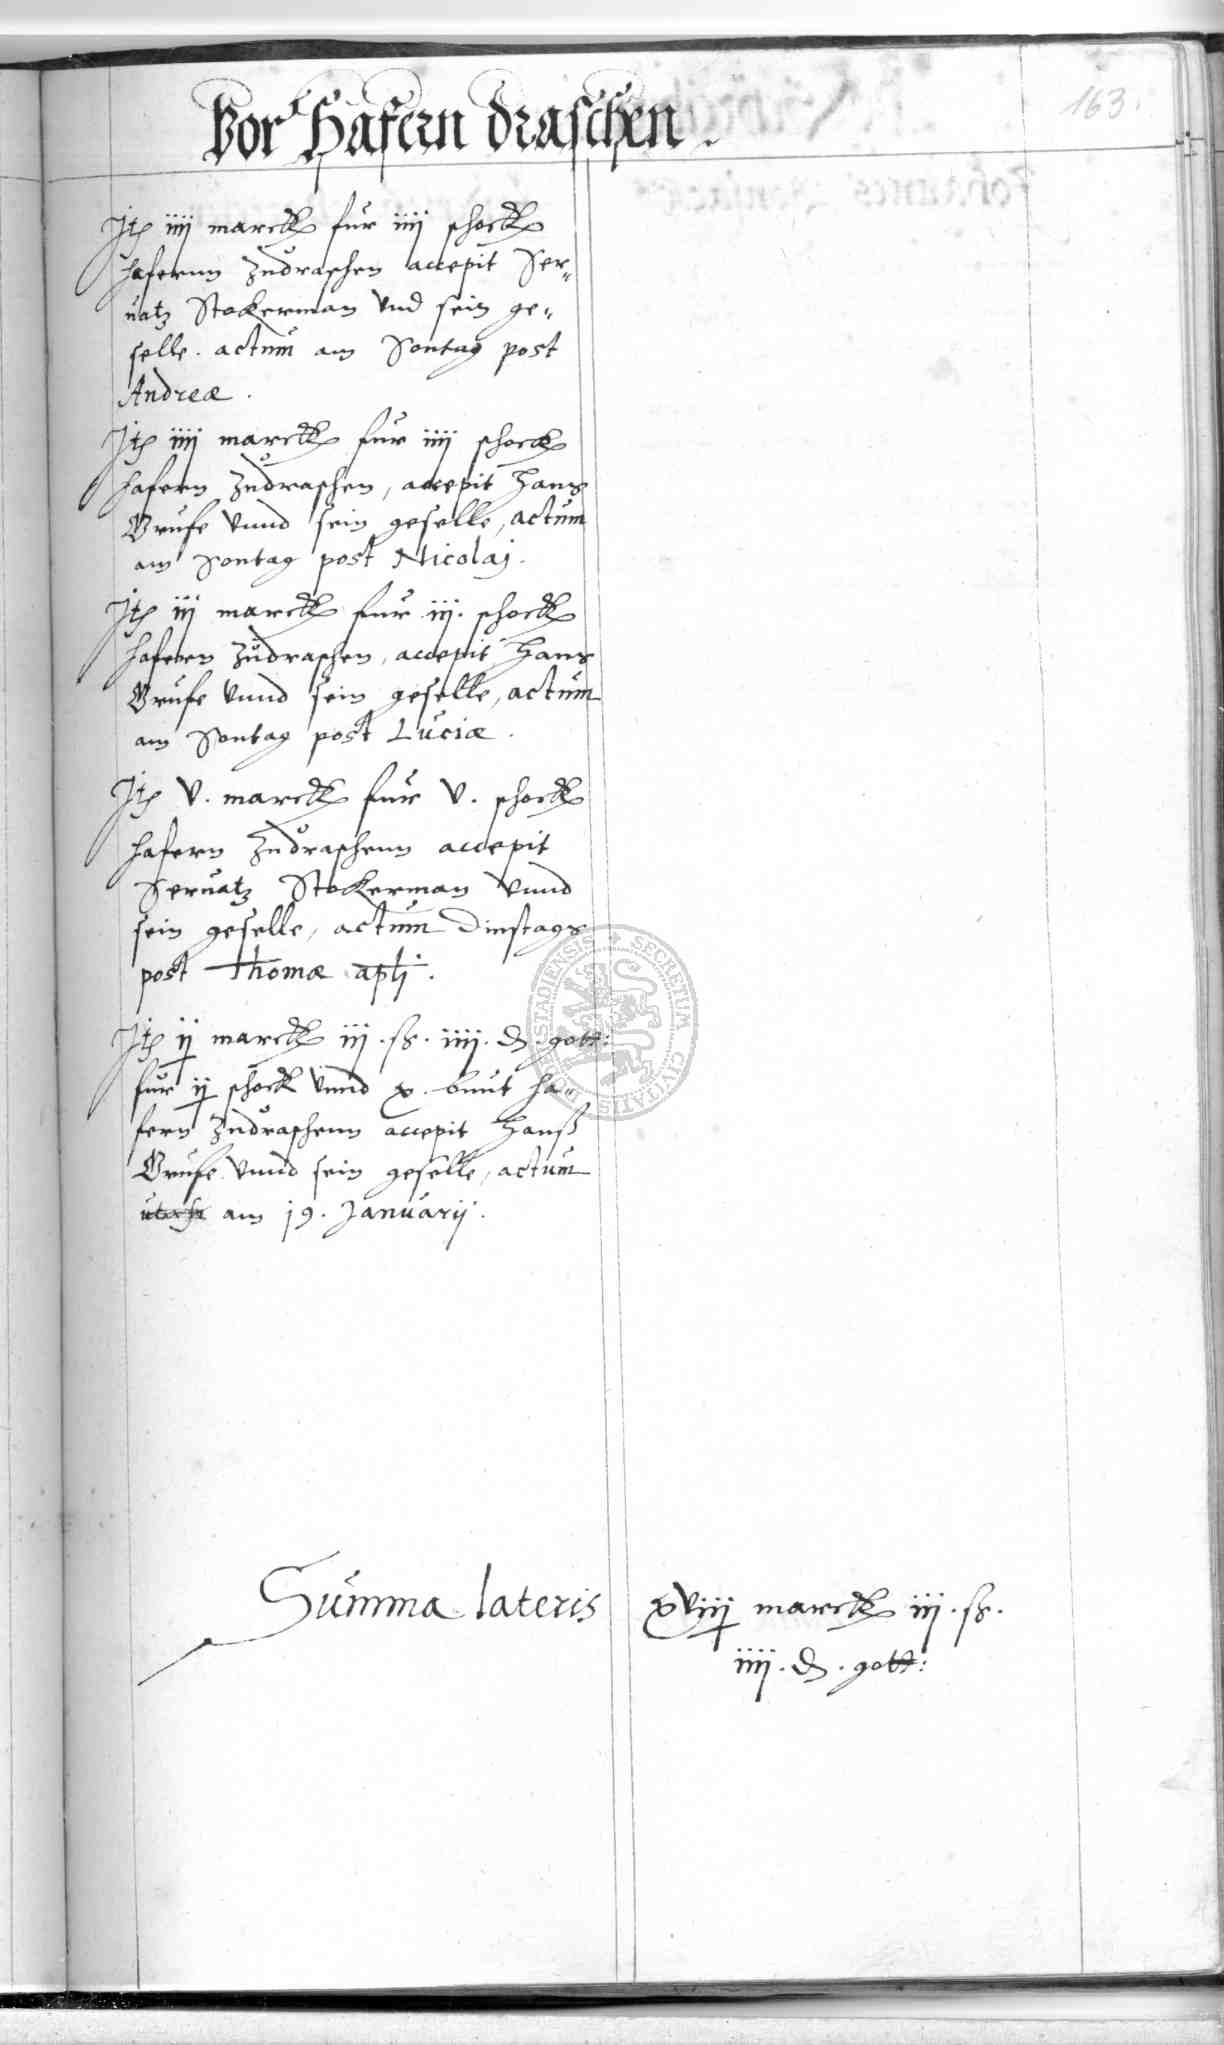 163.
Vor Hafern draschen.
Jt iiij marck fur iiij schock
hafernn zudraschen accepit Ser„
uatz Stokerman vnd sein ge„
selle. actum am Sontag post
Andreæ.
Jt iiij marck fur iiij schock
hafern zudraschen, accepit Hans
vnnd sein geselle, actum
am Sontag post Nicolaj.
Jt iij marck fur iij. schock
hafern zudraschen, accepit Hans
vnnd sein geselle, actum
am Sontag post Luciæ.
Jt V. marck fur V. schock
hafern zudraschenn accepit
Seruatz Stokerman vnnd
sein geselle, actum Dinstags
post Thomæ apli.
Jt ij marck iij. ß. iiij. d. gott:
fur ij schock vnnd x. bunt ha„
fern zudraschenn accepit Hanß
vnnd sein geselle, actum
am 19. Januarij.
Summa lateris xViij marck iij. ß.
iiij. d. gott:
SECRETUM CIVITATIS STADIENSIS